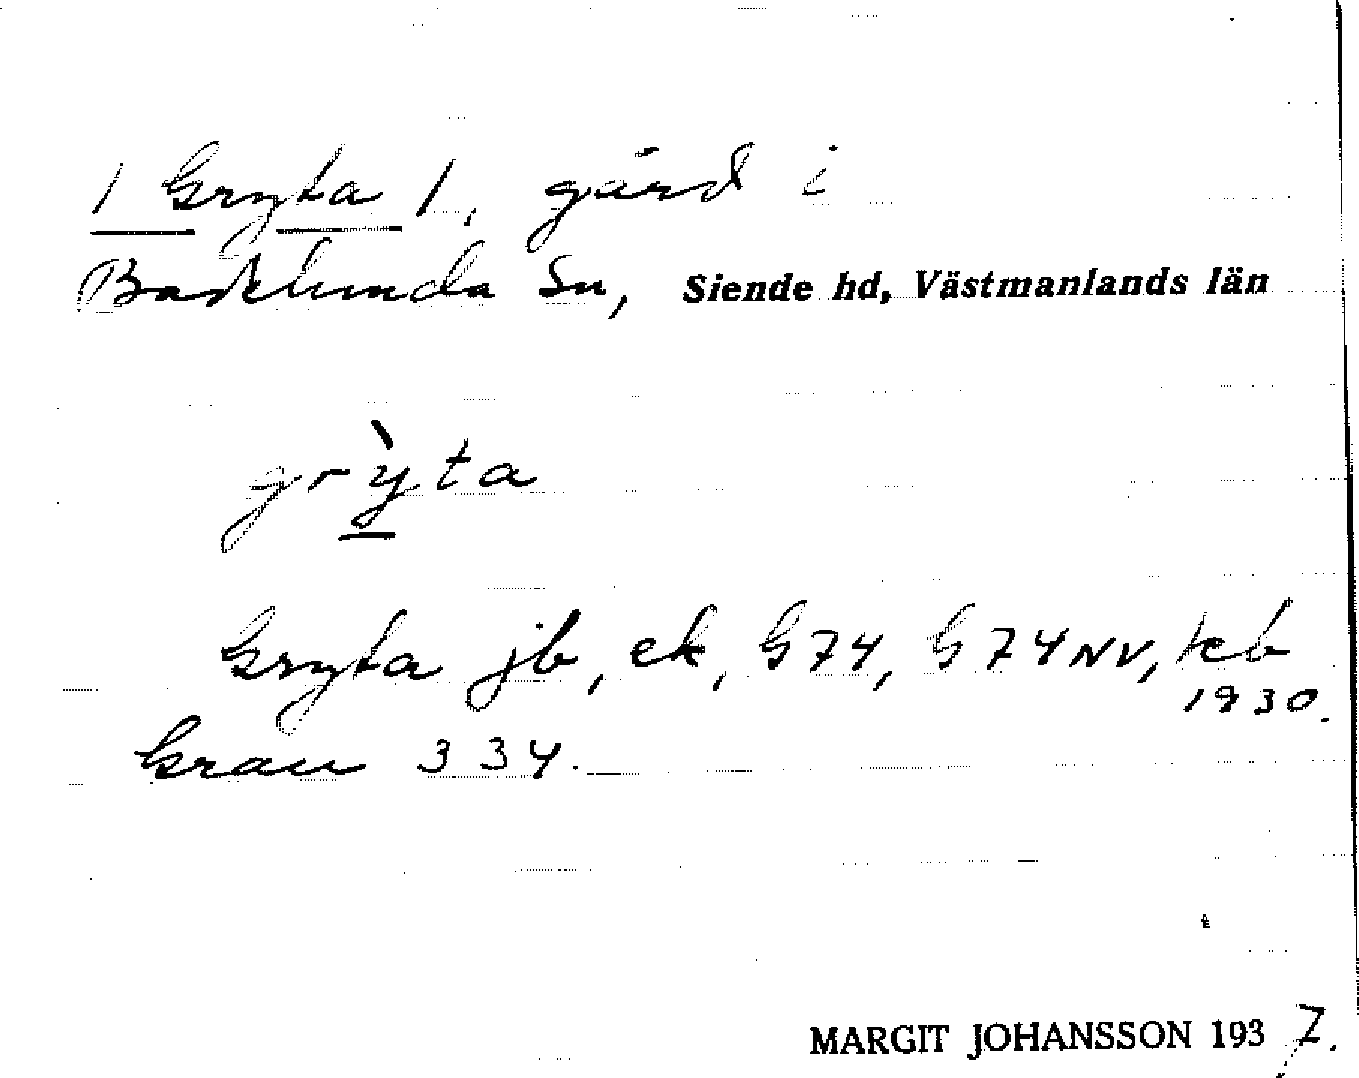 / Gryta /, gård i
Badelunda Sn, Siende hd, Västmanlands län
grỳta
Gryta jb, ek, G74, G74NV, teb
1930.
Grau 334.
MARGIT JOHANSSON 1937.